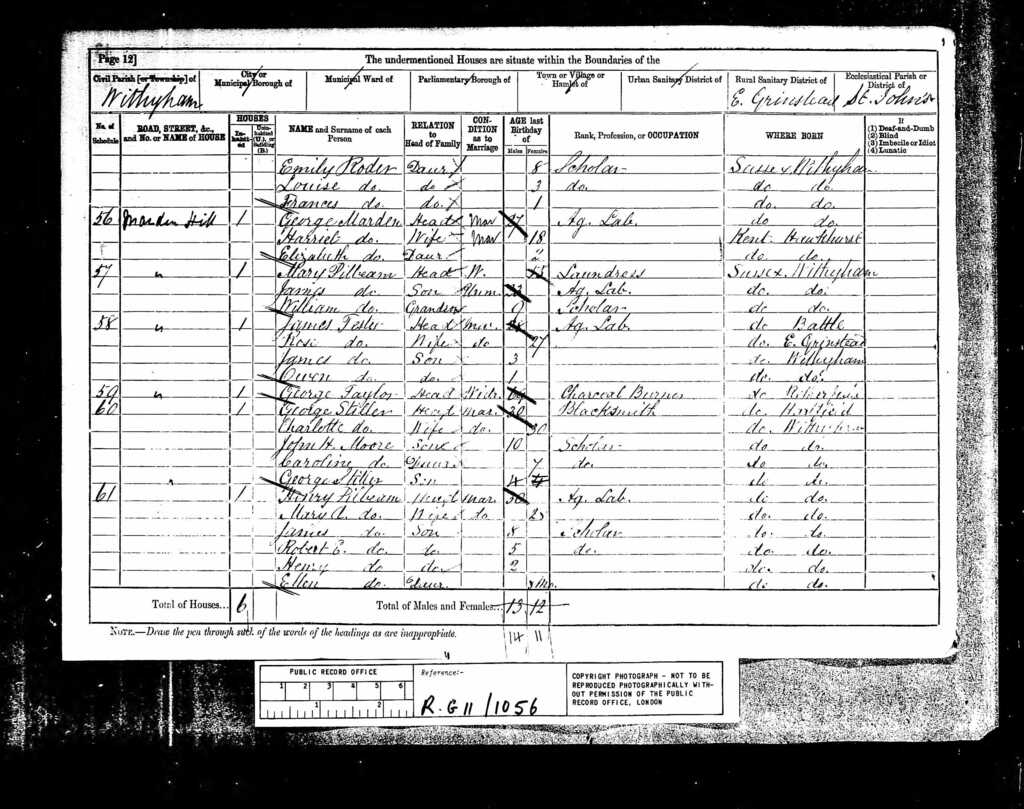 Page 12]
The undermentioned Houses are situate within the Boundaries of the
Civil Parish [or Township] of
City or Municipal Borough of
Municipal Ward of
Parliamentary Borough of
Town or Village or Hamlet of
Urban Sanitary District of
Rural Sanitary District of
Ecclesiastical Parish or District of
Withyham E. Grinstead St. John's
No. of Schedule
ROAD, STREET, &c., and No. or NAME of HOUSE
HOUSES
Inhabited
Uninhabited (U.), or Building (B.)
NAME and Surname of each Person
RELATION to Head of Family
CONDITION as to Marriage
AGE last Birthday of
Males Females
Rank, Profession, or OCCUPATION
WHERE BORN
If
(1) Deaf-and-Dumb
(2) Blind
(3) Imbecile or Idiot
(4) Lunatic
Emily Roder Daur 8 Scholar Sussex Withyham
Louise do. do 3 do. do do.
Frances do. do. 1 do. do.
56 Marden Hill 1 George Marden Head Mar Ag. Lab. do do.
Harriet do. Wife Mar 18 Kent Hawkhurst
Elizabeth do Daur. 2 do. do.
57 " 1 Mary Pilbeam Head W. Laundress Sussex Withyham
James do. Son Unm. Ag. Lab. do. do.
William do. Grandson 9 Scholar do do.
58 " 1 James Head Mar. Ag. Lab. do Battle
Rose do. Wife do 27 do. E. Grinstead
James do. Son 3 do. Withyham
Owen do. do. 1 do. do.
59 " 1 George Taylor Head Widr. 64 Charcoal Burner do
60 " 1 George Stiller Head Mar. 30 Blacksmith do Hartfield
Charlotte do. Wife do. 30 do. Withyham
John H. Moore Son 10 Scholar do do.
Caroline do. Daur 7 do. do do.
George Stiller Son 4 do do.
61 " 1 Henry Pilbeam Head Mar. 30 Ag. Lab. do do.
Mary A. do. Wife do do. do.
James do. Son 8 Scholar do. do.
Robert E. do. do. 5 do. do. do.
Henry do do 2 do. do.
Ellen do. Daur. Mo. do. do.
Total of Houses... 6 Total of Males and Females... 13 12
NOTE.—Draw the pen through such of the words of the headings as are inappropriate.
14 11
PUBLIC RECORD OFFICE
1 2 3 4 5 6
1 2
Reference:-
R.G 11 / 1056
COPYRIGHT PHOTOGRAPH - NOT TO BE
REPRODUCED PHOTOGRAPHICALLY WITH-
OUT PERMISSION OF THE PUBLIC
RECORD OFFICE, LONDON